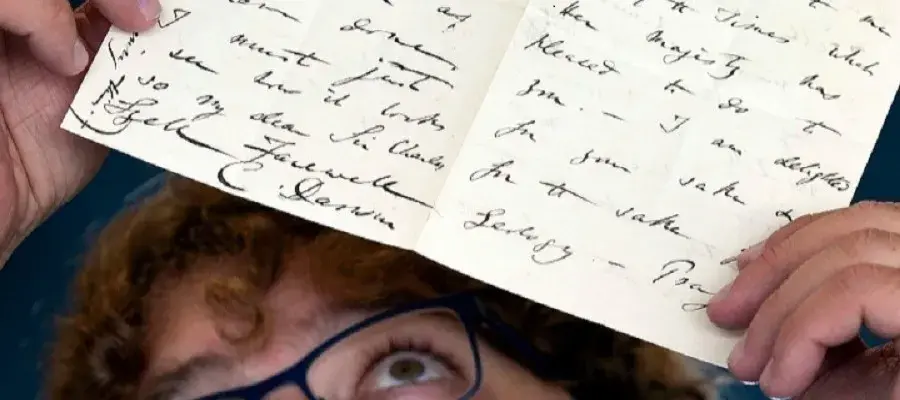 as,
I must just
see how it looks
so my dear Sir Charles,
Lyell Farewell
C. Darwin
Times when
her Majesty has
pleased to do to
you. — I am delighted
for your sake &
for the sake
Geology — Pray